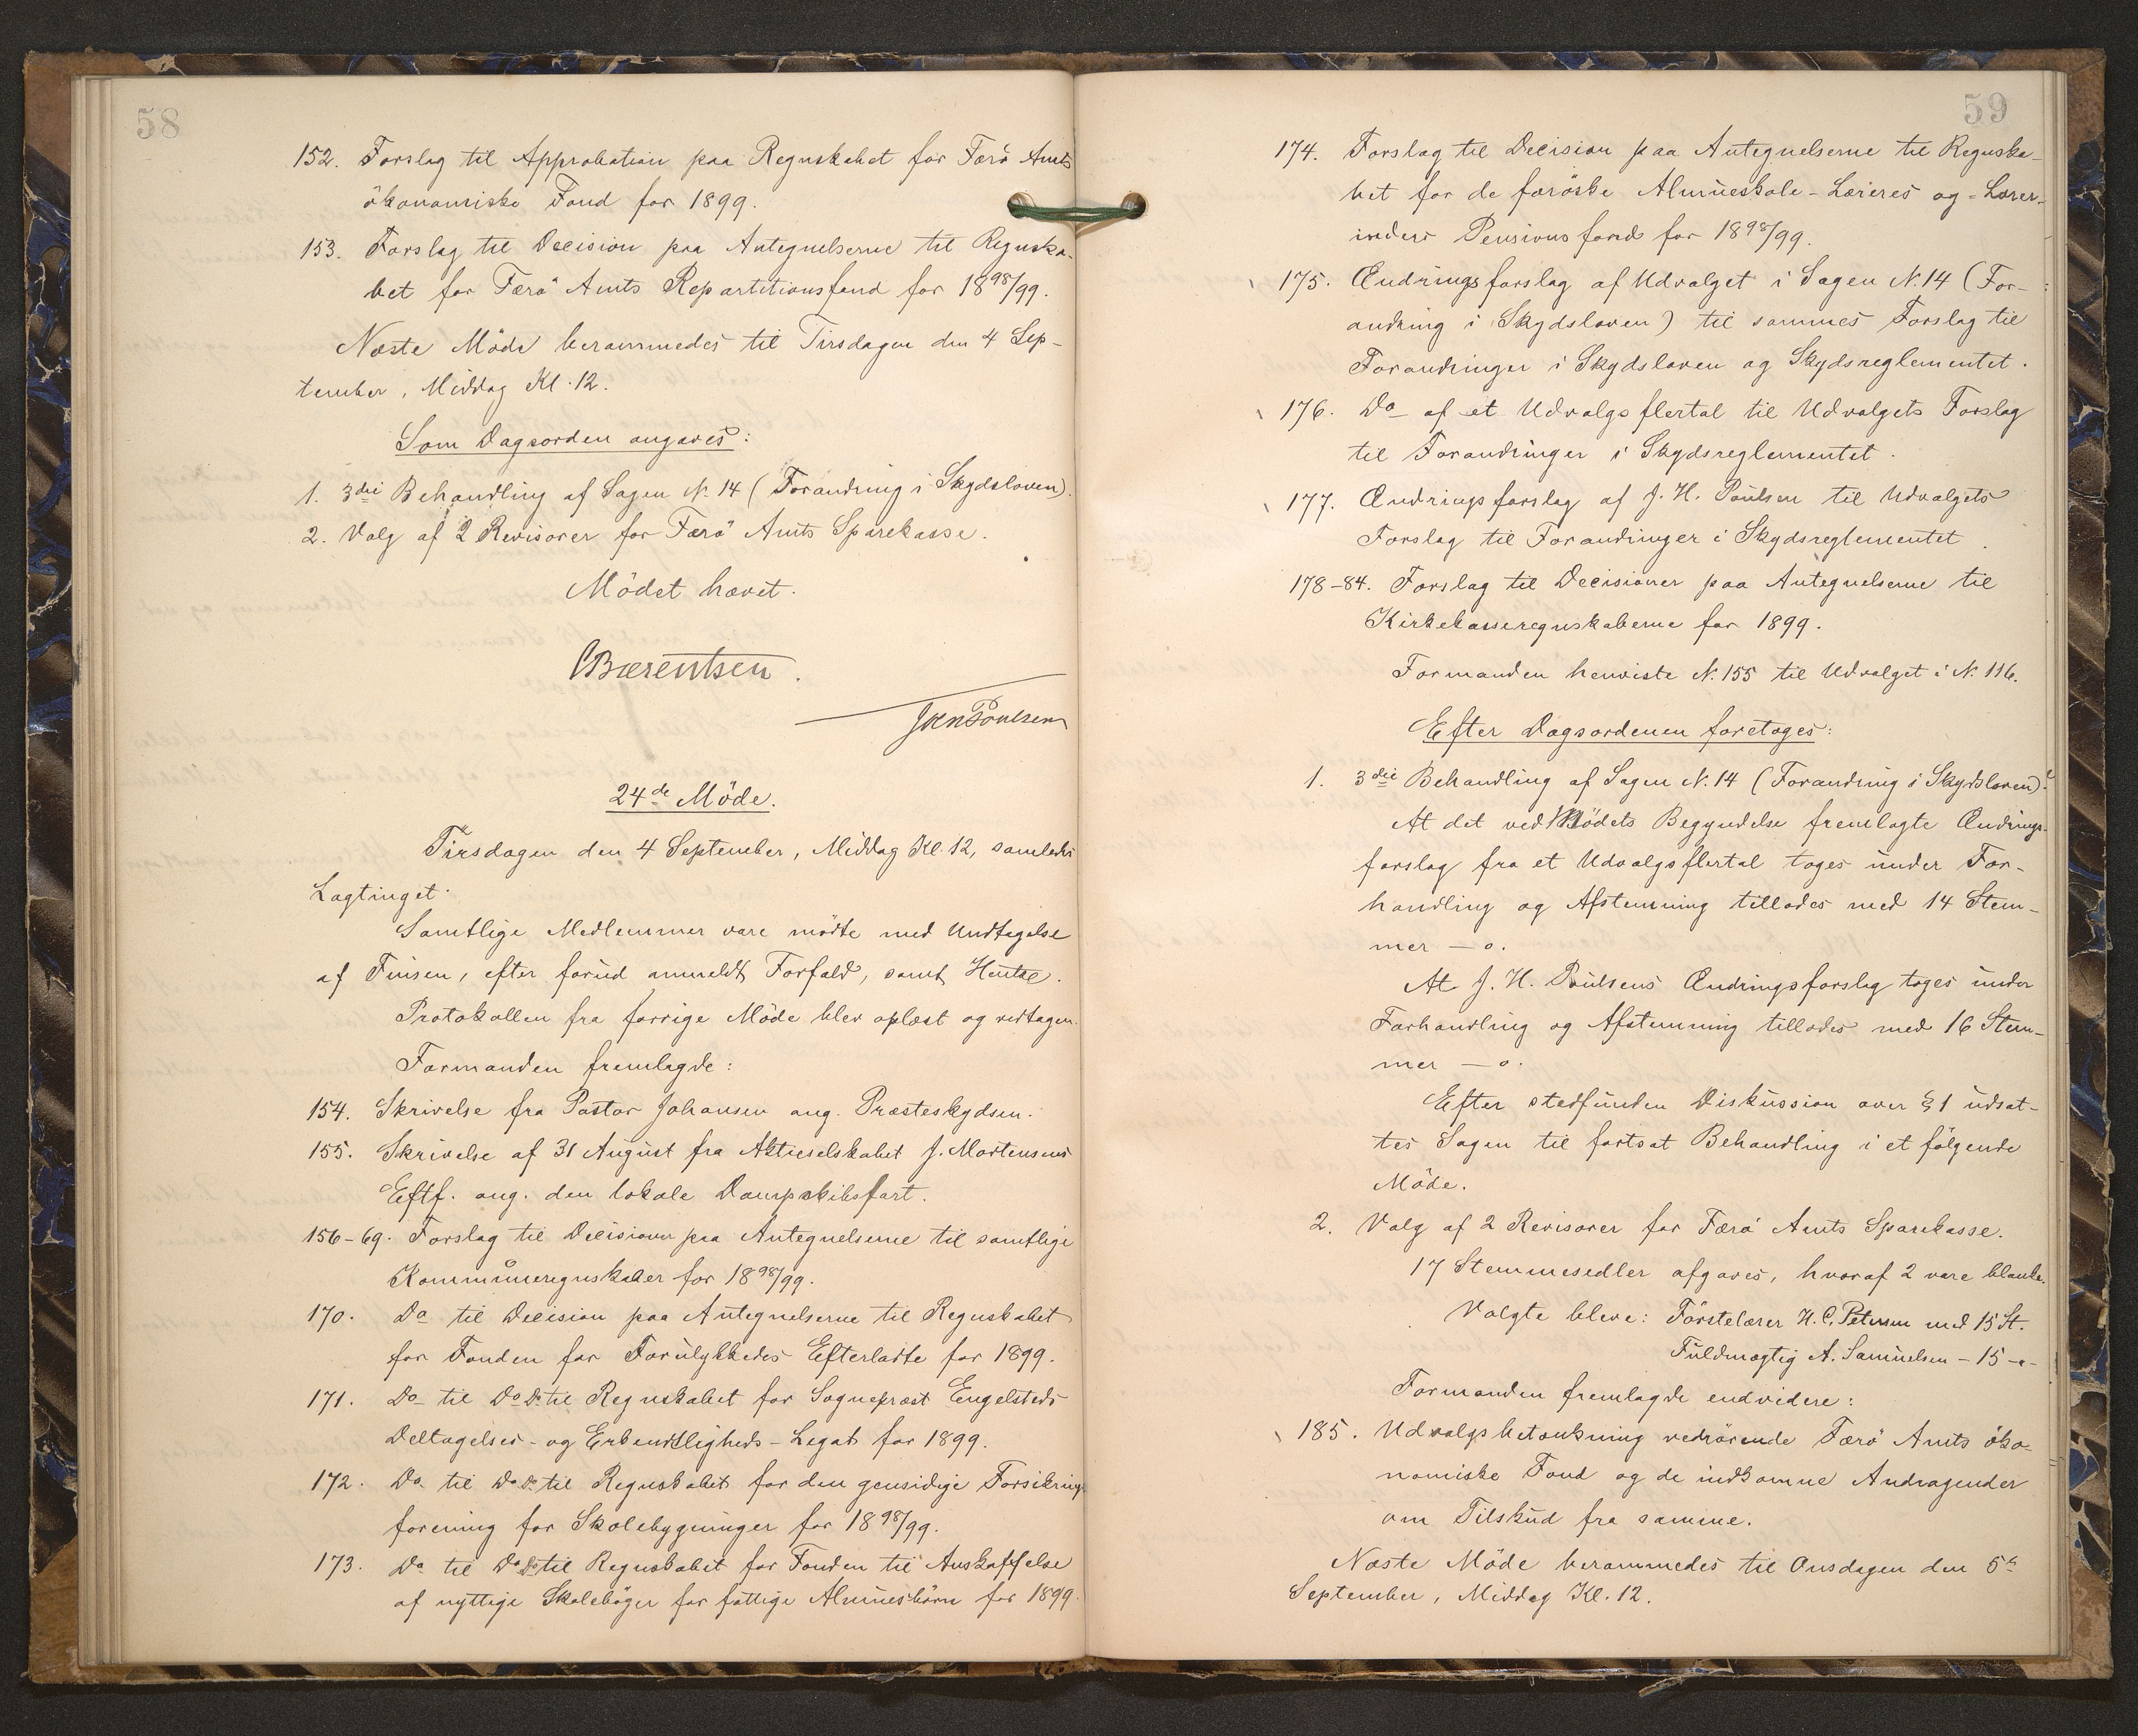 58
152. Forslag til Approbation paa Regnskabet for Færö Amts
ökonomiske Fond for 1899.
153. Forslag til Decision paa Antegnelserne til Regnska-
bet for Færö Amts Repartitionsfond for 1898/99.
Næste Möde berammedes til Tirsdagen den 4 Sep-
tember, Middag Kl. 12.
Som Dagsorden angaves:
1. 3die Behandling af Sagen N. 14 (Forandring i Skydsloven).
2. Valg af 2 Revisorer for Færö Amts Sparekasse.
Mödet hævet.
CBærentsen.
JHPoulsen
24de Möde.
Tirsdagen den 4 September, Middag Kl. 12, samledes
Lagtinget.
Samtlige Medlemmer vare mödte med Undtagelse
af Finsen, efter forud anmeldt Forfald, samt Hentze.
Protokollen fra forrige Möde blev oplæst og vedtagen.
Formanden fremlagde:
154. Skrivelse fra Pastor Johansen ang. Præsteskydsen.
155. Skrivelse af 31 August fra Aktieselskabet J. Mortensens
Eftf. ang. den lokale Dampskibsfart.
156-69. Forslag til Decisioner paa Antegnelserne til samtlige
Kommuneregnskaber for 1898/99.
170. Do til Decision paa Antegnelserne til Regnskabet
for Fonden for Forulykkedes Efterladte for 1899.
171. Do til Do Do til Regnskabet for Sognepræst Engelsteds
Deltagelses- og Erkendtligheds-Legat for 1899.
172. Do til Do Do til Regnskabet for den gensidige Forsikrings-
forening for Skolebygninger for 1898/99.
173. Do til Do Do til Regnskabet for Fonden til Anskaffelse
af nyttige Skoleböger for fattige Almuesbörn for 1899.
59
174. Forslag til Decision paa Antegnelserne til Regnska-
bet for de færöske Almueskole-Læreres og -Lærer-
inders Pensionsfond for 1898/99.
175. Ændringsforslag af Udvalget i Sagen N. 14 (For-
andring i Skydsloven) til sammes Forslag til
Forandringer i Skydsloven og Skydsreglementet.
176. Do af et Udvalgsflertal til Udvalgets Forslag
til Forandringer i Skydsreglementet.
177. Ændringsforslag af J. H. Poulsen til Udvalgets
Forslag til Forandringer i Skydsreglementet.
178-84. Forslag til Decisioner paa Antegnelserne til
Kirkekasseregnskaberne for 1899.
Formanden henviste N. 155 til Udvalget i N. 116.
Efter Dagsordenen foretoges:
1. 3die Behandling af Sagen N. 14 (Forandring i Skydsloven).
At det ved Mödets Begyndelse fremlagte Ændrings-
forslag fra et Udvalgsflertal toges under For-
handling og Afstemning tillodes med 14 Stem-
mer — o.
At J. H. Poulsens Ændringsforslag toges under
Forhandling og Afstemning tillodes med 16 Stem-
mer — o.
Efter stedfunden Diskussion over § 1 udsat-
tes Sagen til fortsat Behandling i et fölgende
Möde.
2. Valg af 2 Revisorer for Færö Amts Sparekasse.
17 Stemmesedler afgaves, hvoraf 2 vare blanke.
Valgte bleve: Förstelærer H. C. Petersen med 15 St.
Fuldmægtig A. Samuelsen - 15 -"-
Formanden fremlagde endvidere:
185. Udvalgsbetænkning vedrörende Færö Amts öko-
nomiske Fond og de indkomne Andragender
om Tilskud fra samme.
Næste Möde berammedes til Onsdagen den 5te
September, Middag Kl. 12.